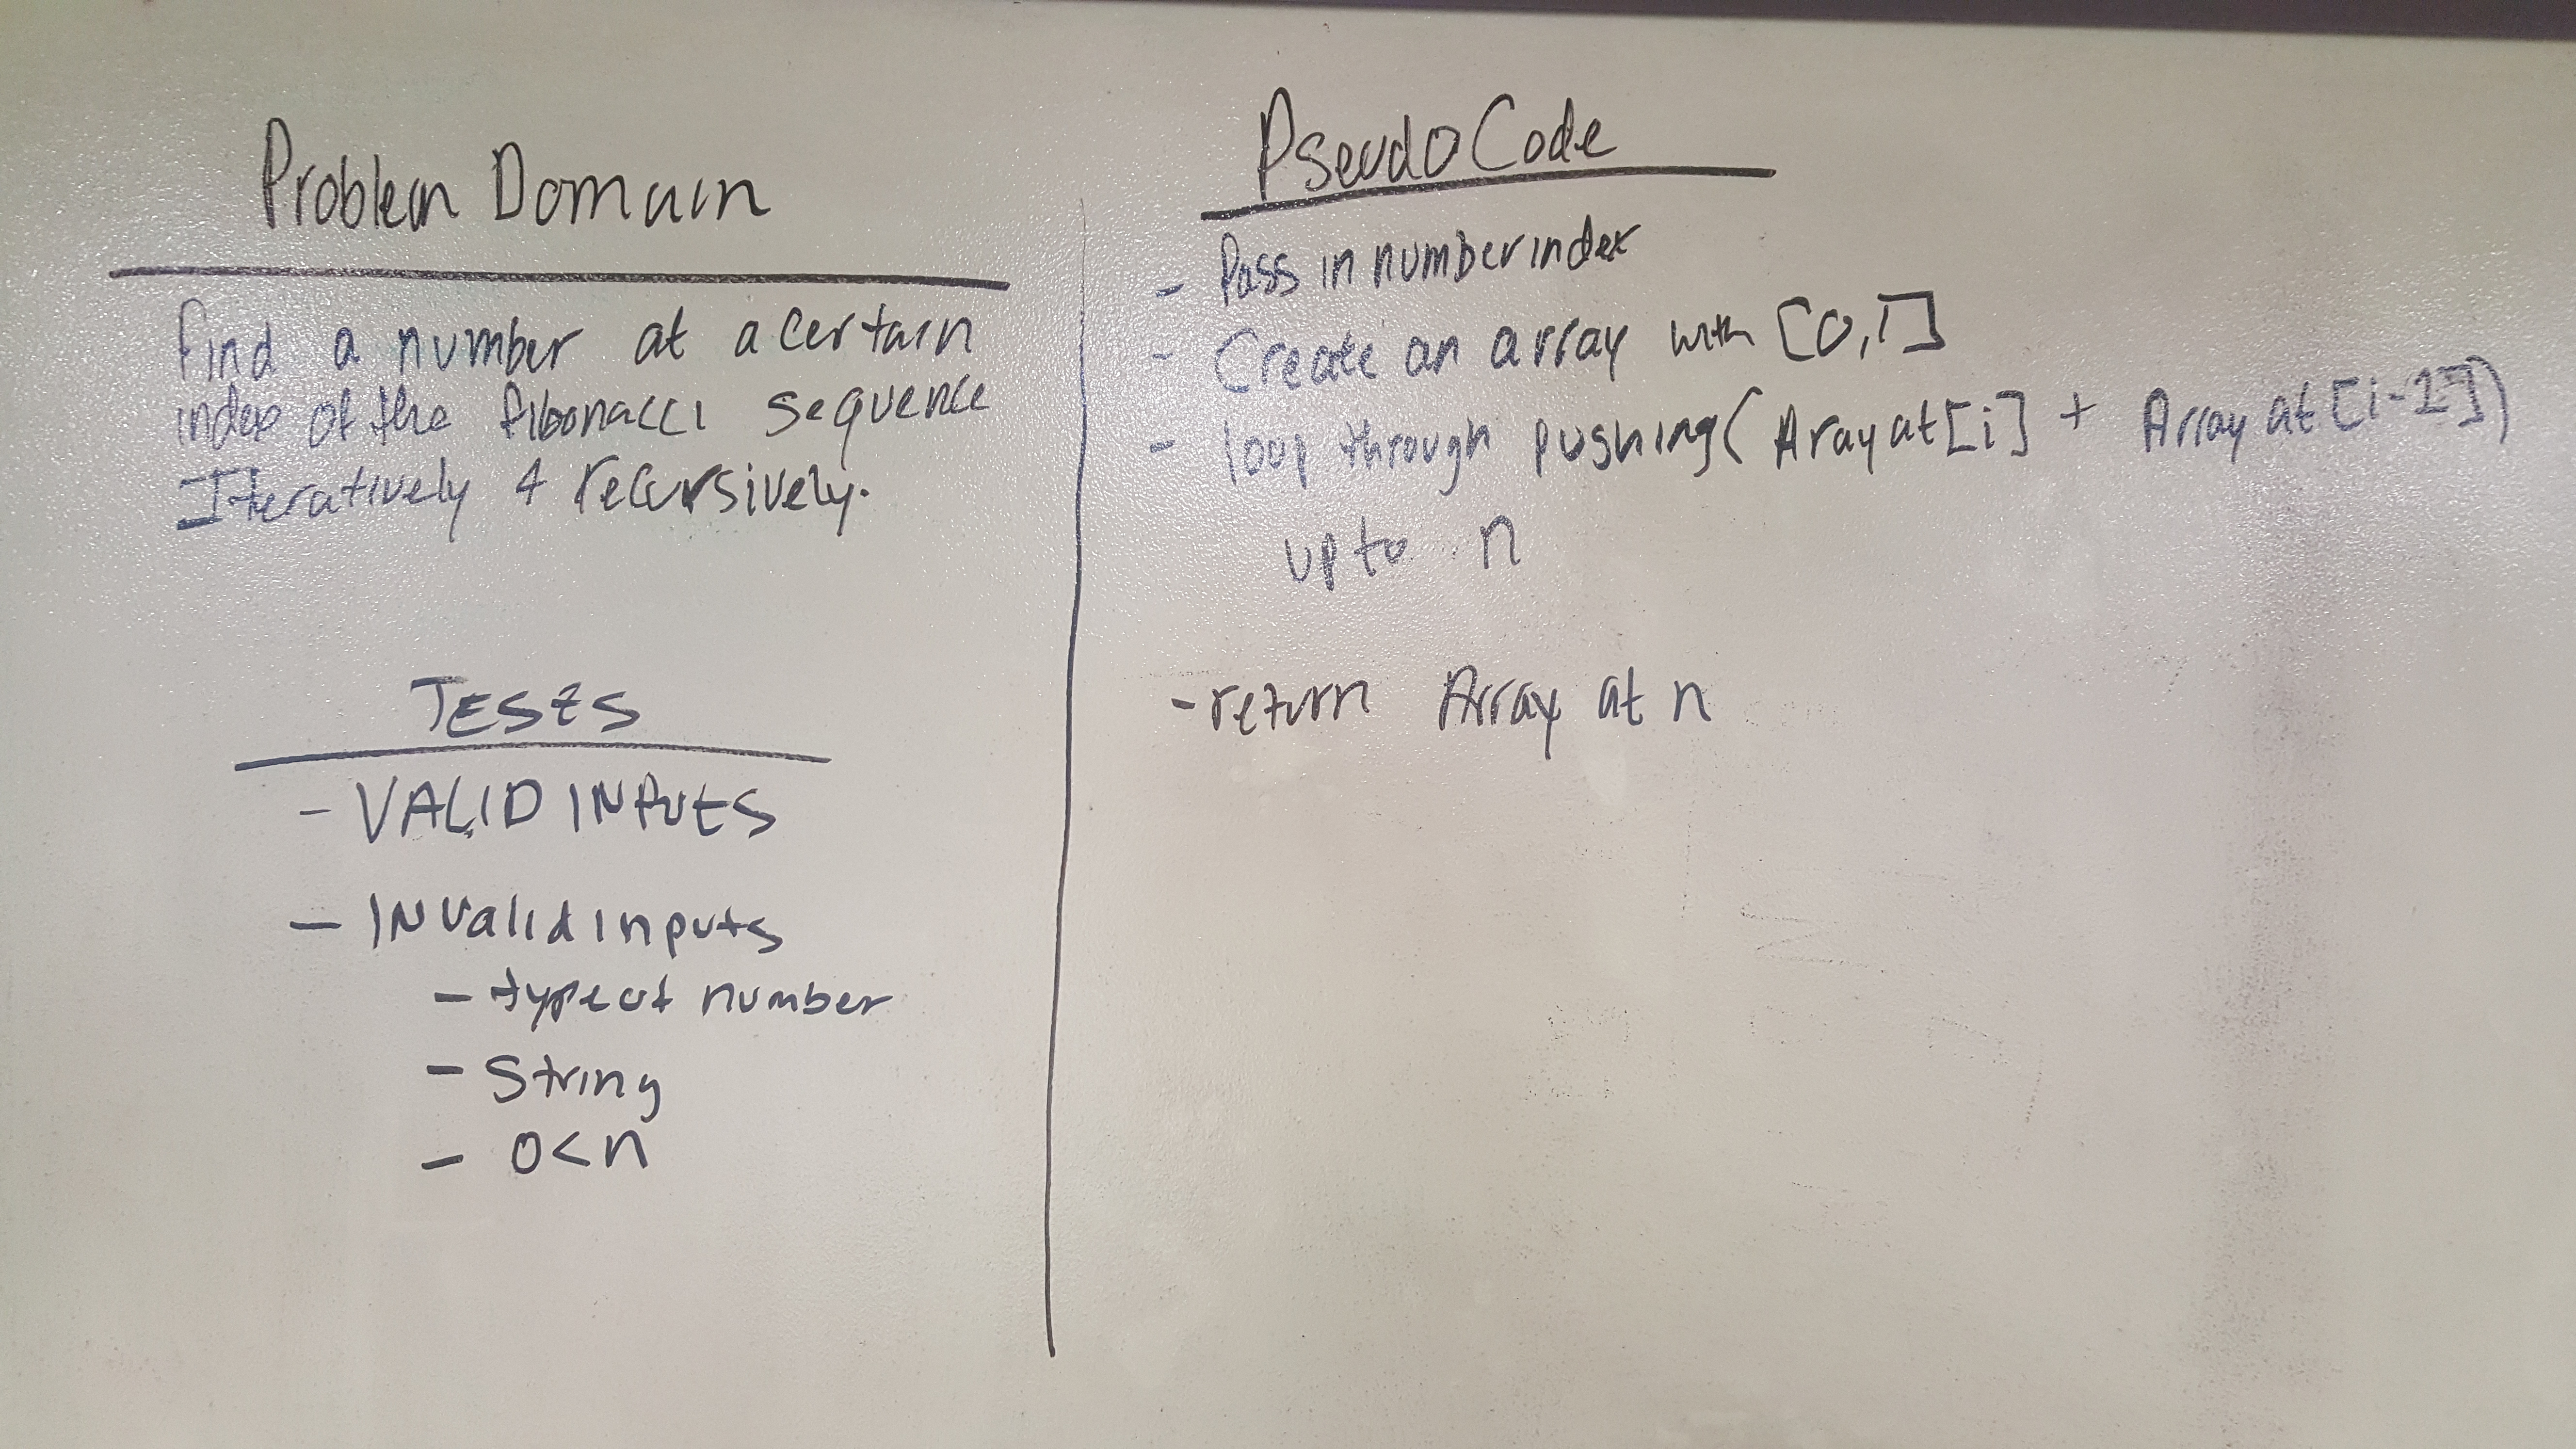 Problem Domain
find a number at a certain
index of the fibonacci sequence
Iteratively & recursively.
TESTS
- VALID INPUTS
- INValid inputs
- type of number
- String
- 0<n
Pseudo Code
- Pass in number index
- Create an array with [0,1]
- loop through pushing( Aray at[i] + Array at[i-1])
up to n
- return Array at n